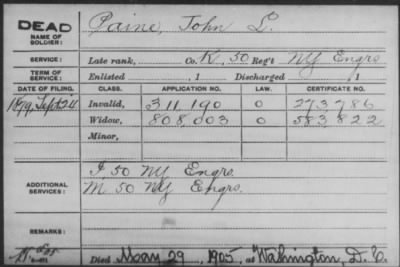 DEAD Paine, John L.
NAME OF SOLDIER:
SERVICE: Late rank, Co. K, 50 Reg't NY Engrs
TERM OF SERVICE: Enlisted , 1 Discharged , 1
DATE OF FILING. CLASS. APPLICATION NO. LAW. CERTIFICATE NO.
1879, Sept 24 Invalid, 311,190 0 273,786
Widow, 808,003 0 583,822
Minor,
ADDITIONAL SERVICES: I, 50 NY Engrs.
M 50 NY Engrs.
REMARKS:
Died May 29, 1905, at Wahington, D.C.